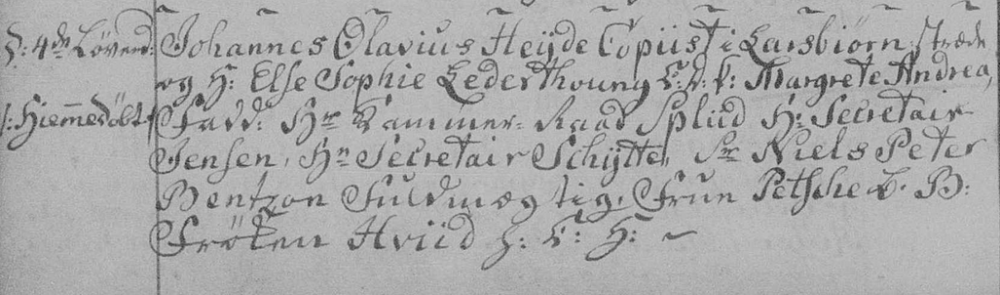 d: 4de Løverd: Johannes Olavius Heyde Copiist i Larsbiørn stræde
og H: Else Sophie Lederthoung E: d. k: Margrete Andrea,
/: Hiemmedøbt :/ Fadd: Hr Cammer-Raad Splud H: Secretair
Jensen, Hr Secretair Schytte, Sr Niels Peter
Bentzon Fuldmægtig, Frun Petsche b. B:
Frøken Hviid h: C: H: